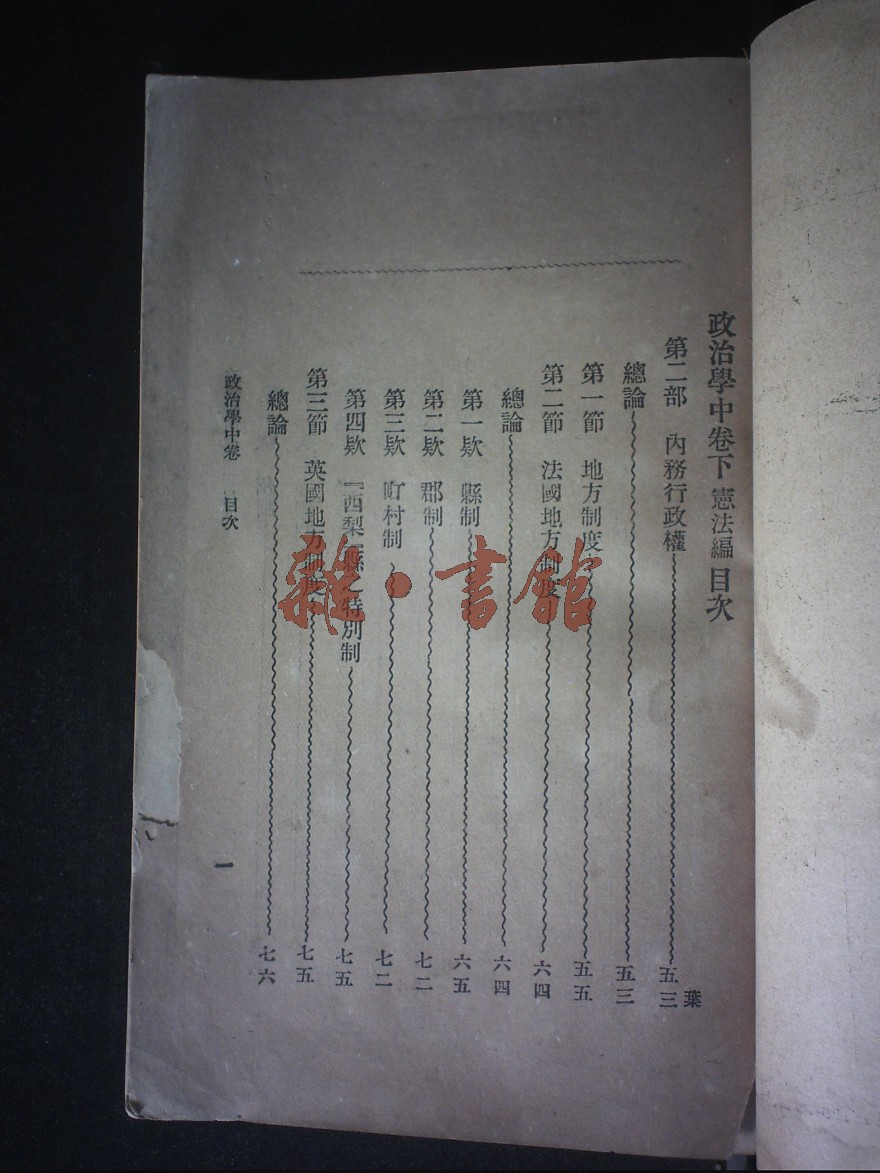 政治學中卷下 憲法編 目次
葉
第二部 內務行政權 五三
總論 五三
第一節 地方制度 五五
第二節 法國地方制度 六四
總論 六四
第一欵 縣制 六五
第二欵 郡制 七二
第三欵 町村制 七二
第四欵 「西梨」縣之特別制 七五
第三節 英國地方制度 七五
總論 七六
政治學中卷 目次 一
雜·書館